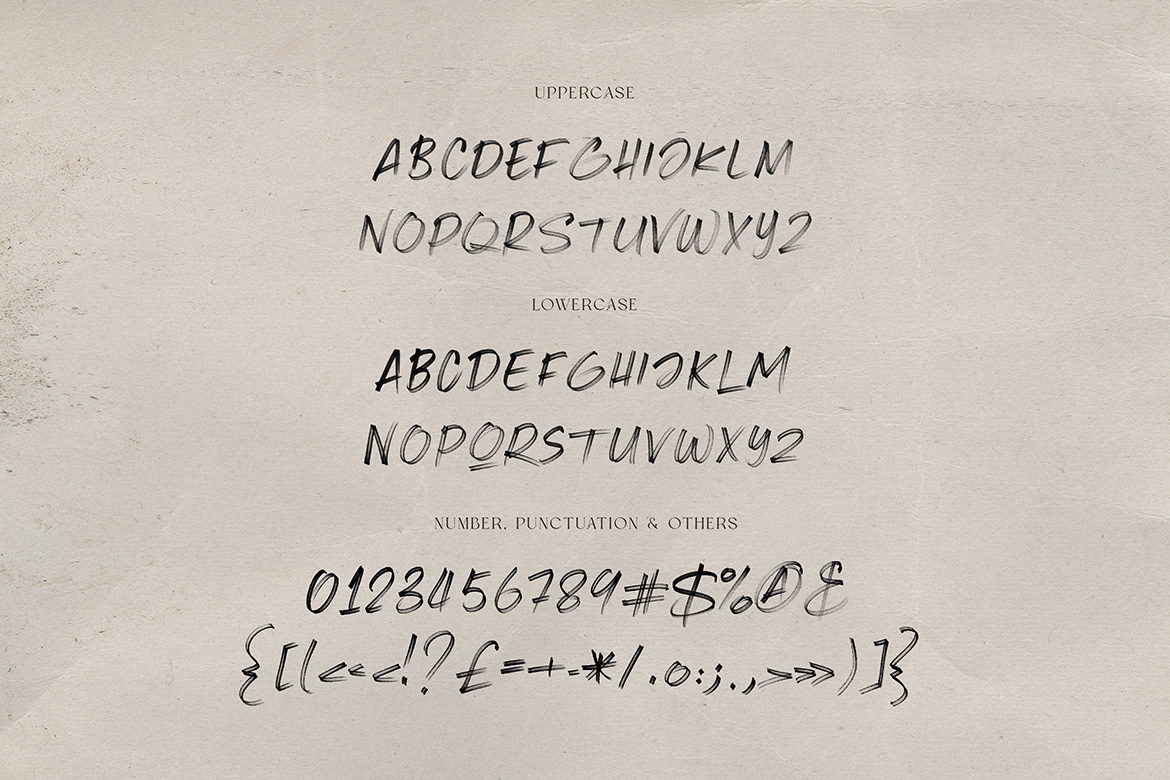 UPPERCASE
ABCDEFGHIJKLM
NOPQRSTUVWXYZ
LOWERCASE
ABCDEFGHIJKLM
NOPQRSTUVWXYZ
NUMBER, PUNCTUATION & OTHERS
0123456789#$%@&
{[(<<<!?£=+-*/.o:;.,>>>)]}